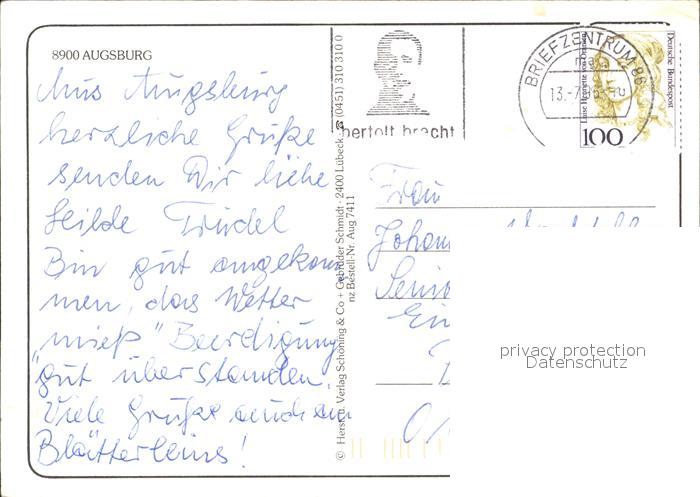 8900 AUGSBURG
Aus Augsburg
herzliche Grüße
senden Dir liebe
Hilde Trudel
Bin gut angekom
men, das Wetter
„mieß“ Beerdigung
gut überstanden.
Viele Grüße auch an
© Herst. u. Verlag Schöning & Co + Gebrüder Schmidt · 2400 Lübeck · (0451) 310 310 0
nz Bestell-Nr. Aug 7411
bertolt brecht
BRIEFZENTRUM 86
ma
13.-7.
Deutsche Bundespost
Luise Henriette von Oranien
100
Frau
privacy protection
Datenschutz